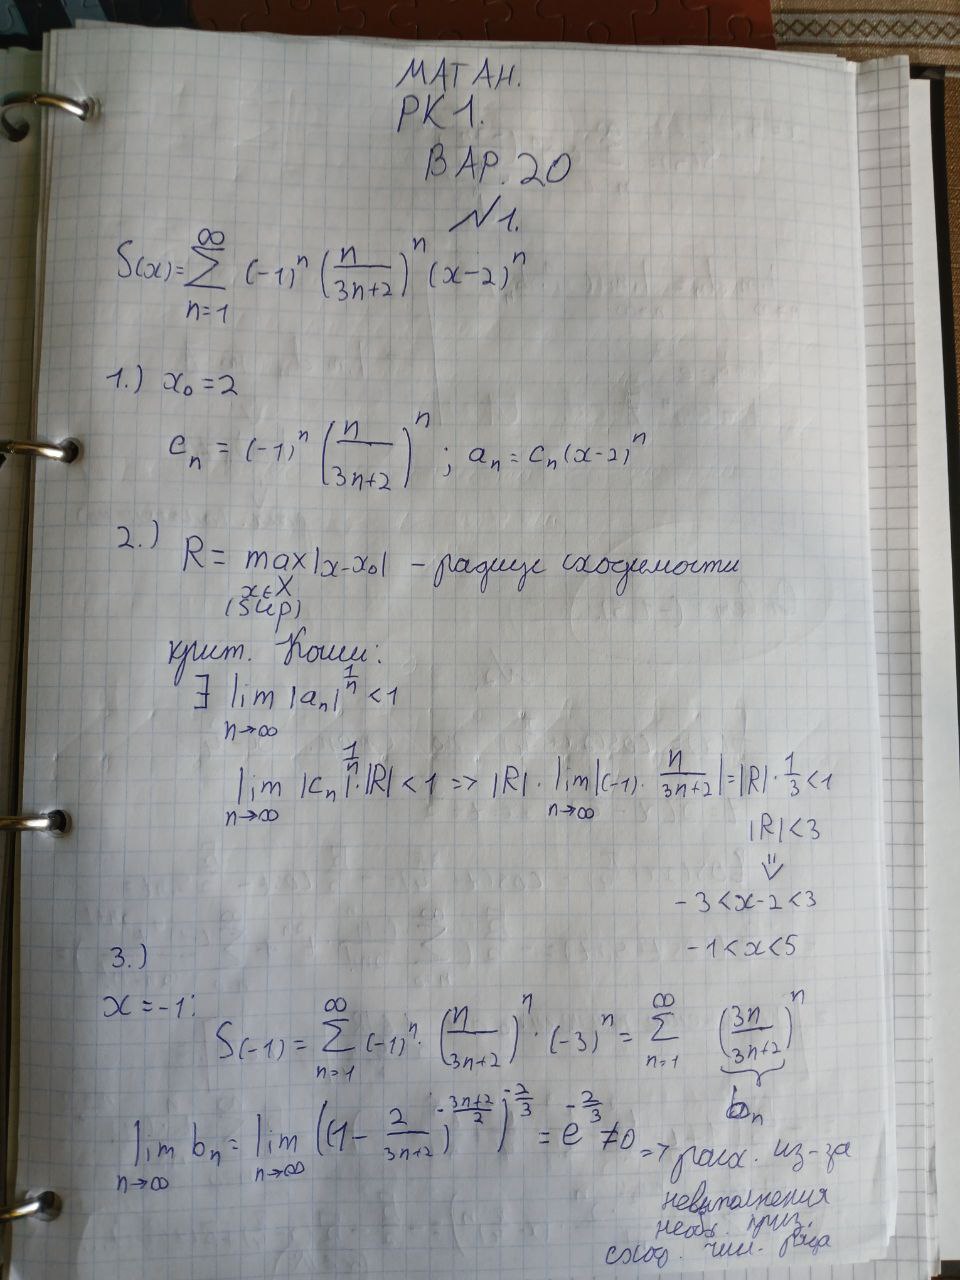 МАТАН.
РК1.
ВАР. 20
№1.
S(x) = ∑_{n=1}^{∞} (-1)^n (n/(3n+2))^n (x-2)^n
1.) x₀ = 2
c_n = (-1)^n (n/(3n+2))^n ; a_n = c_n (x-2)^n
2.) R = max_{x∈X (sup)} |x-x₀| - радиус сходимости
крит. Коши:
∃ lim_{n→∞} |a_n|^{1/n} < 1
lim_{n→∞} |c_n|^{1/n} · |R| < 1 => |R| · lim_{n→∞} |(-1) · n/(3n+2)| = |R| · 1/3 < 1
|R| < 3
⇓
-3 < x-2 < 3
-1 < x < 5
3.)
x = -1:
S(-1) = ∑_{n=1}^{∞} (-1)^n · (n/(3n+2))^n · (-3)^n = ∑_{n=1}^{∞} (3n/(3n+2))^n
b_n
lim_{n→∞} b_n = lim_{n→∞} ((1 - 2/(3n+2))^{-(3n+2)/2})^{-2/3} = e^{-2/3} ≠ 0 => расх. из-за
невыполнения
необ. приз.
сход. чис. ряда